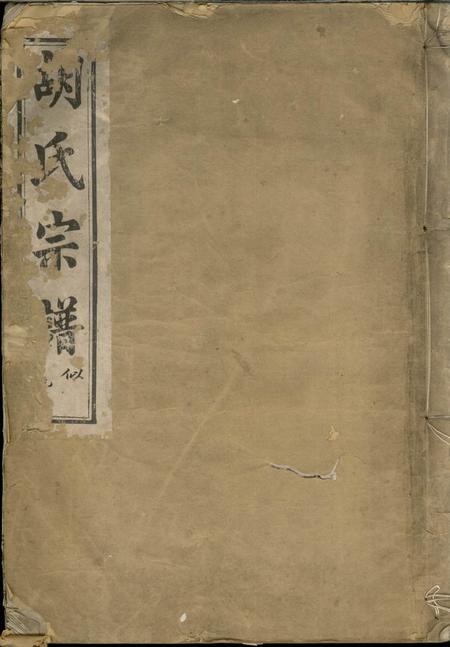 胡氏宗譜
似